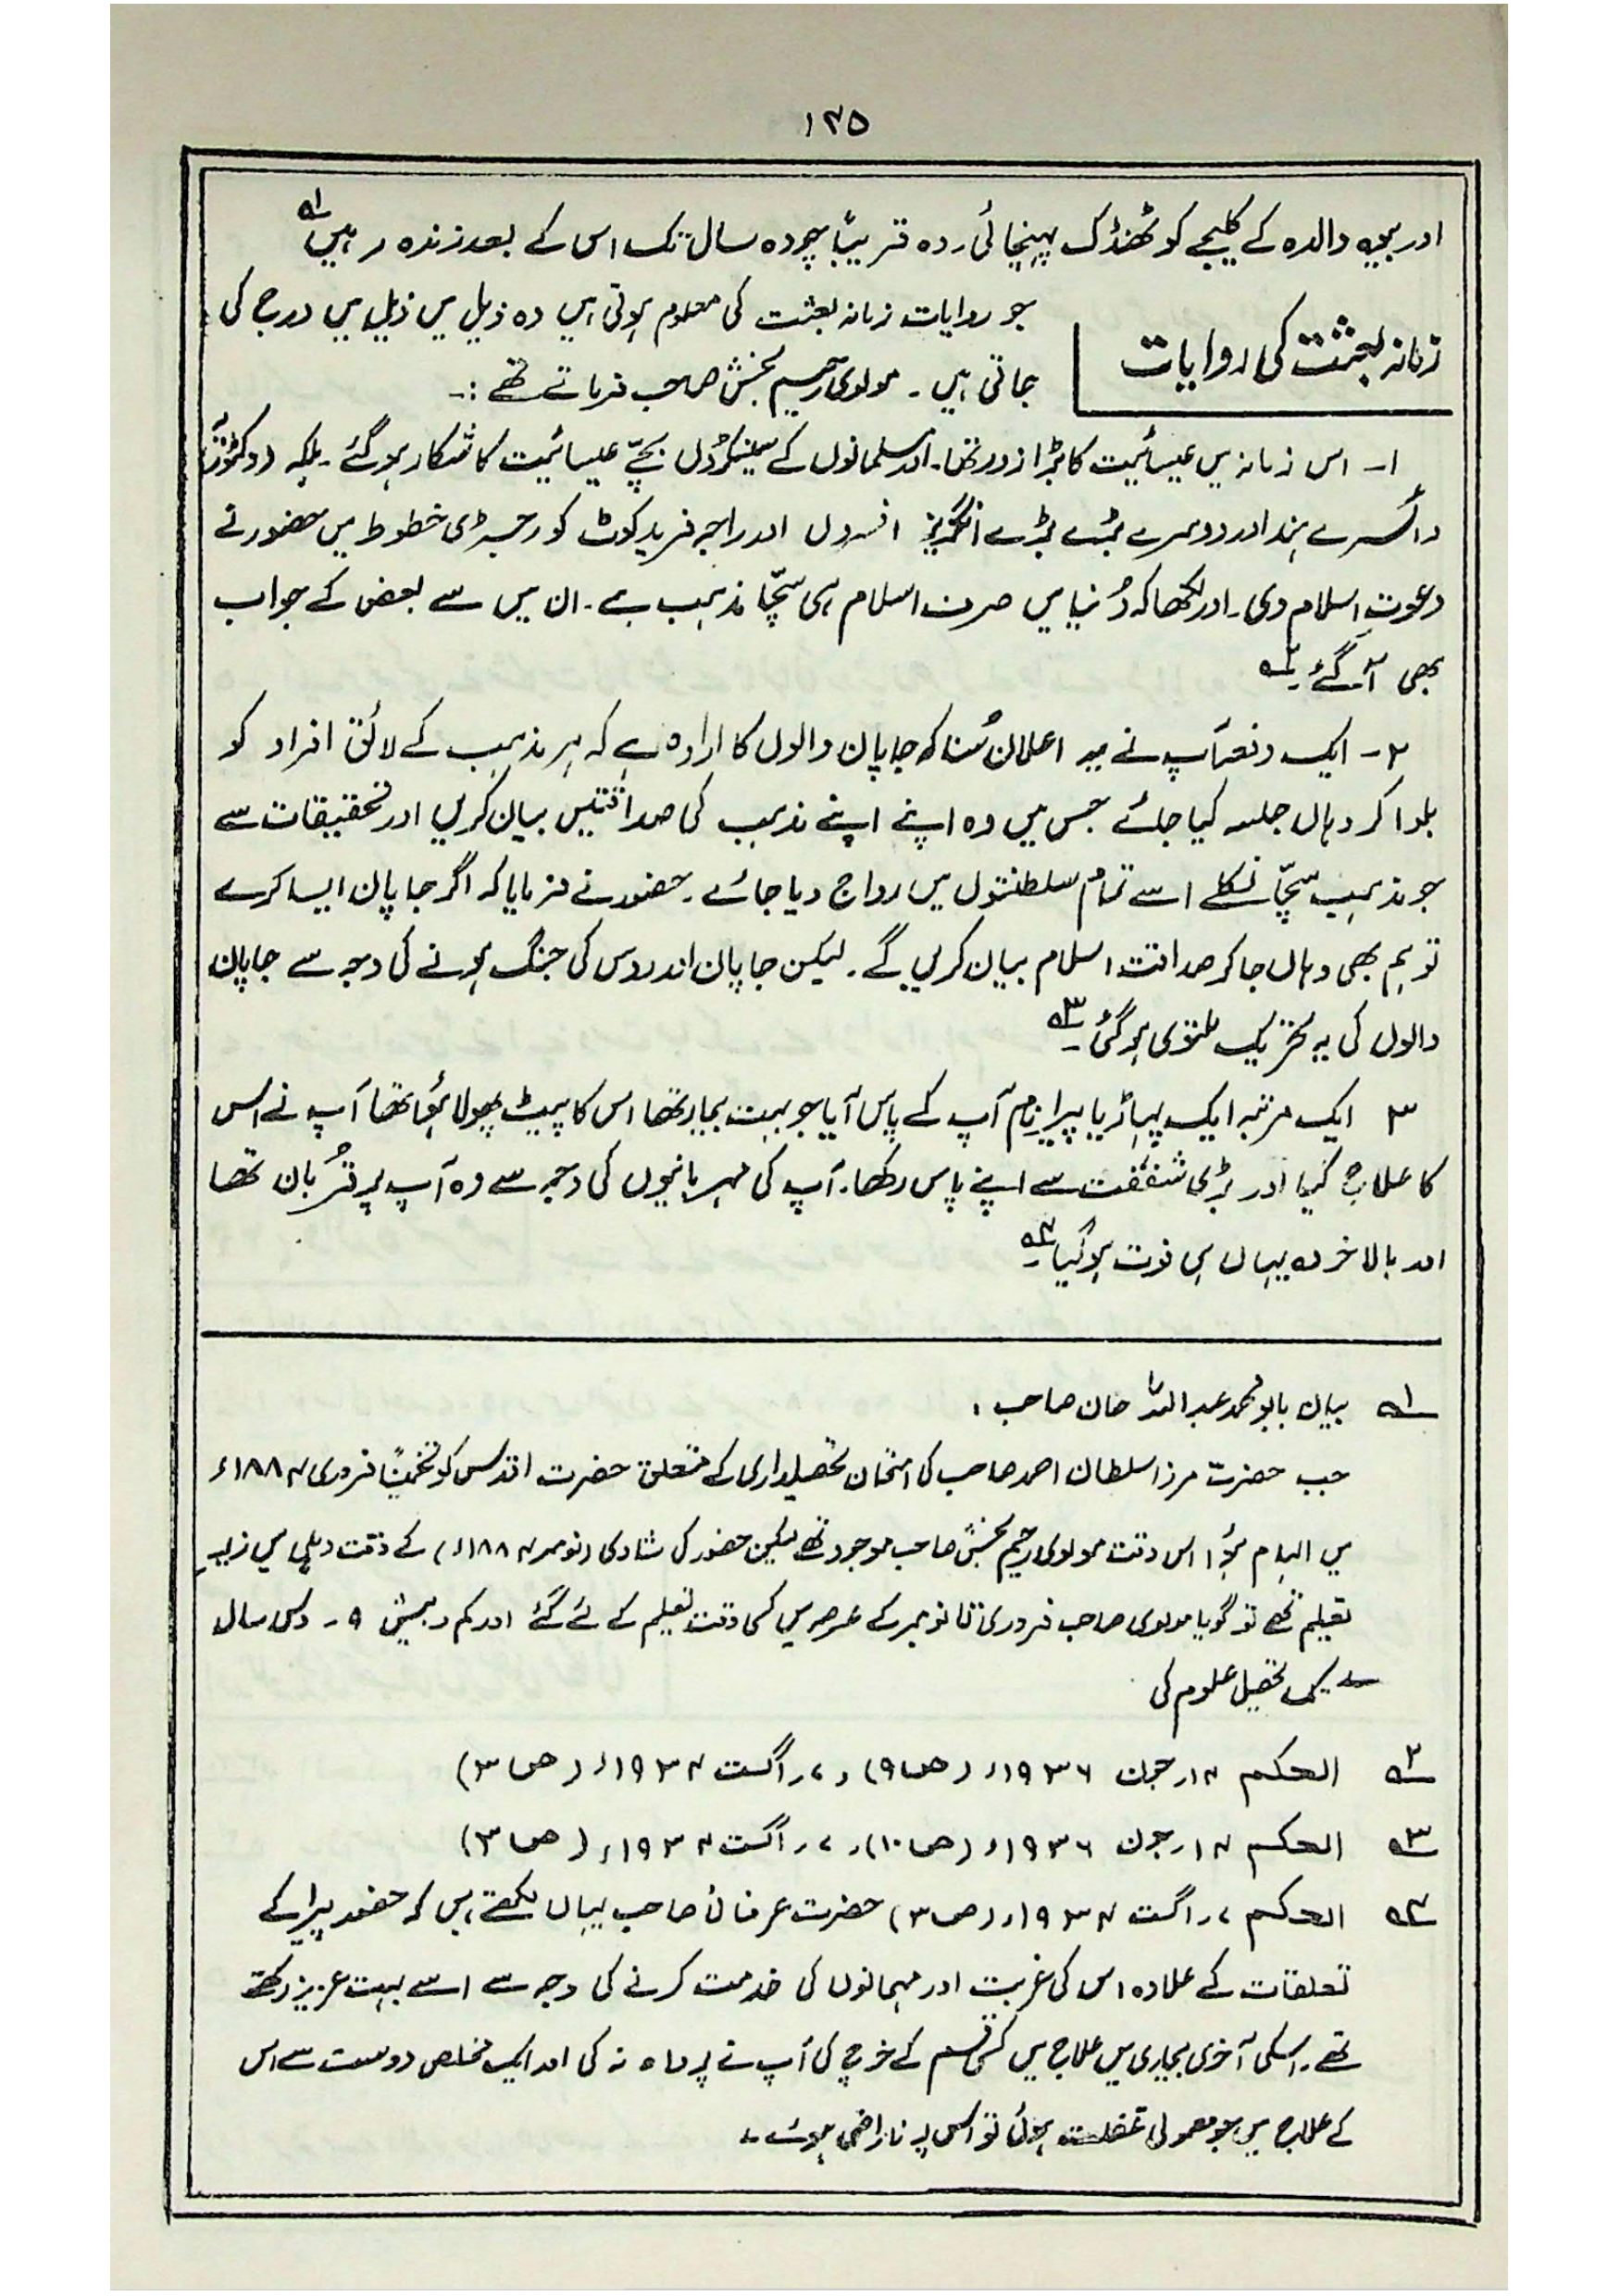 ۱۲۵
اور بیوہ والدہ کے کلیجے کو ٹھنڈک پہنچائی۔ وہ قریباً چودہ سال تک اس کے بعد زندہ رہیں۔ ۱؎
زمانہ بعثت کی روایات
جو روایات زمانہ بعثت کی معلوم ہوتی ہیں وہ ذیل میں ذیل میں درج کی
جاتی ہیں۔ مولوی رحیم بخش صاحب فرماتے تھے :۔
۱۔ اس زمانہ میں عیسائیت کا بڑا زور تھا۔ اور مسلمانوں کے سینکڑوں بچّے عیسائیت کا شکار ہو گئے۔ ملکہ (وکٹوریہ)
وائسرے ہند اور دوسرے بڑے بڑے انگریز افسروں اور راجہ فرید کوٹ کو رجسڑی خطوط میں حضور نے
دعوتِ اسلام دی۔ اور لکھا کہ دُنیا میں صرف اسلام ہی سچّا مذہب ہے۔ ان میں سے بعض کے جواب
بھی آ گئے۔ ۲؎
۲۔ ایک دفعہ آپ نے یہ اعلان سُنا کہ جاپان والوں کا ارادہ ہے کہ ہر مذہب کے لائق افراد کو
بلوا کر وہاں جلسہ کیا جائے جس میں وہ اپنے اپنے مذہب کی صداقتیں بیان کریں اور تحقیقات سے
جو مذہب سچّا نکلے اسے تمام سلطنتوں میں رواج دیا جائے۔ حضور نے فرمایا کہ اگر جاپان ایسا کرے
تو ہم بھی وہاں جا کر صداقت اسلام بیان کریں گے۔ لیکن جاپان اور روس کی جنگ ہونے کی وجہ سے جاپان
والوں کی یہ تحریک ملتوی ہو گئی۔ ۳؎
۳ ایک مرتبہ ایک پہاڑیا پیرا نام آپ کے پاس آیا جو بہت بیمار تھا اس کا پیٹ پھولا ہُوا تھا آپ نے اس
کا علاج کیا اور بڑی شفقت سے اپنے پاس رکھا۔ آپ کی مہربانیوں کی وجہ سے وہ آپ پر قُربان تھا
اور بالاخر وہ یہاں ہی فوت ہو گیا۔ ۴؎
۱؎ بیان بابو محمد عبداللہ خان صاحب۔
جب حضرت مرزا سلطان احمد صاحب کی امتحان تحصیلداری کے متعلق حضرت اقدس کو تخمیناً فروری ۱۸۸۴ء
میں الہام ہُوا اس وقت مولوی رحیم بخش صاحب موجود تھے لیکن حضور کی شادی (نومبر ۱۸۸۴ء) کے وقت دہلی میں زیر
تعلیم تھے تو گویا مولوی صاحب فروری تا نومبر کے عرصہ میں کسی وقت تعلیم کے لئے گئے اور کم و بیش ۹۔ دس سال
تک تحصیل علوم کی
۲؎ الحکم ۱۴؍ جون ۱۹۳۶ء (ص ۹) و ۷؍ اگست ۱۹۳۴ء (ص ۳)
۳؎ الحکم ۱۴؍ جون ۱۹۳۶ء (ص ۱۰) و ۷؍ اگست ۱۹۳۴ء (ص ۳)
۴؎ الحکم ۷؍ اگست ۱۹۳۴ء (ص ۳) حضرت عرفانی صاحب یہاں لکھتے ہیں کہ حضور پیرا کے
تعلقات کے علاوہ اس کی غربت اور مہمانوں کی خدمت کرنے کی وجہ سے اسے بہت عزیز رکھتے
تھے۔ اسکی آخری بیماری میں علاج میں کسی قسم کے خرچ کی آپ نے پرواہ نہ کی اور ایک مخلص دوست سے اس
کے علاج میں جو معمولی غفلت ہوئی تو اس پہ ناراض ہوئے۔